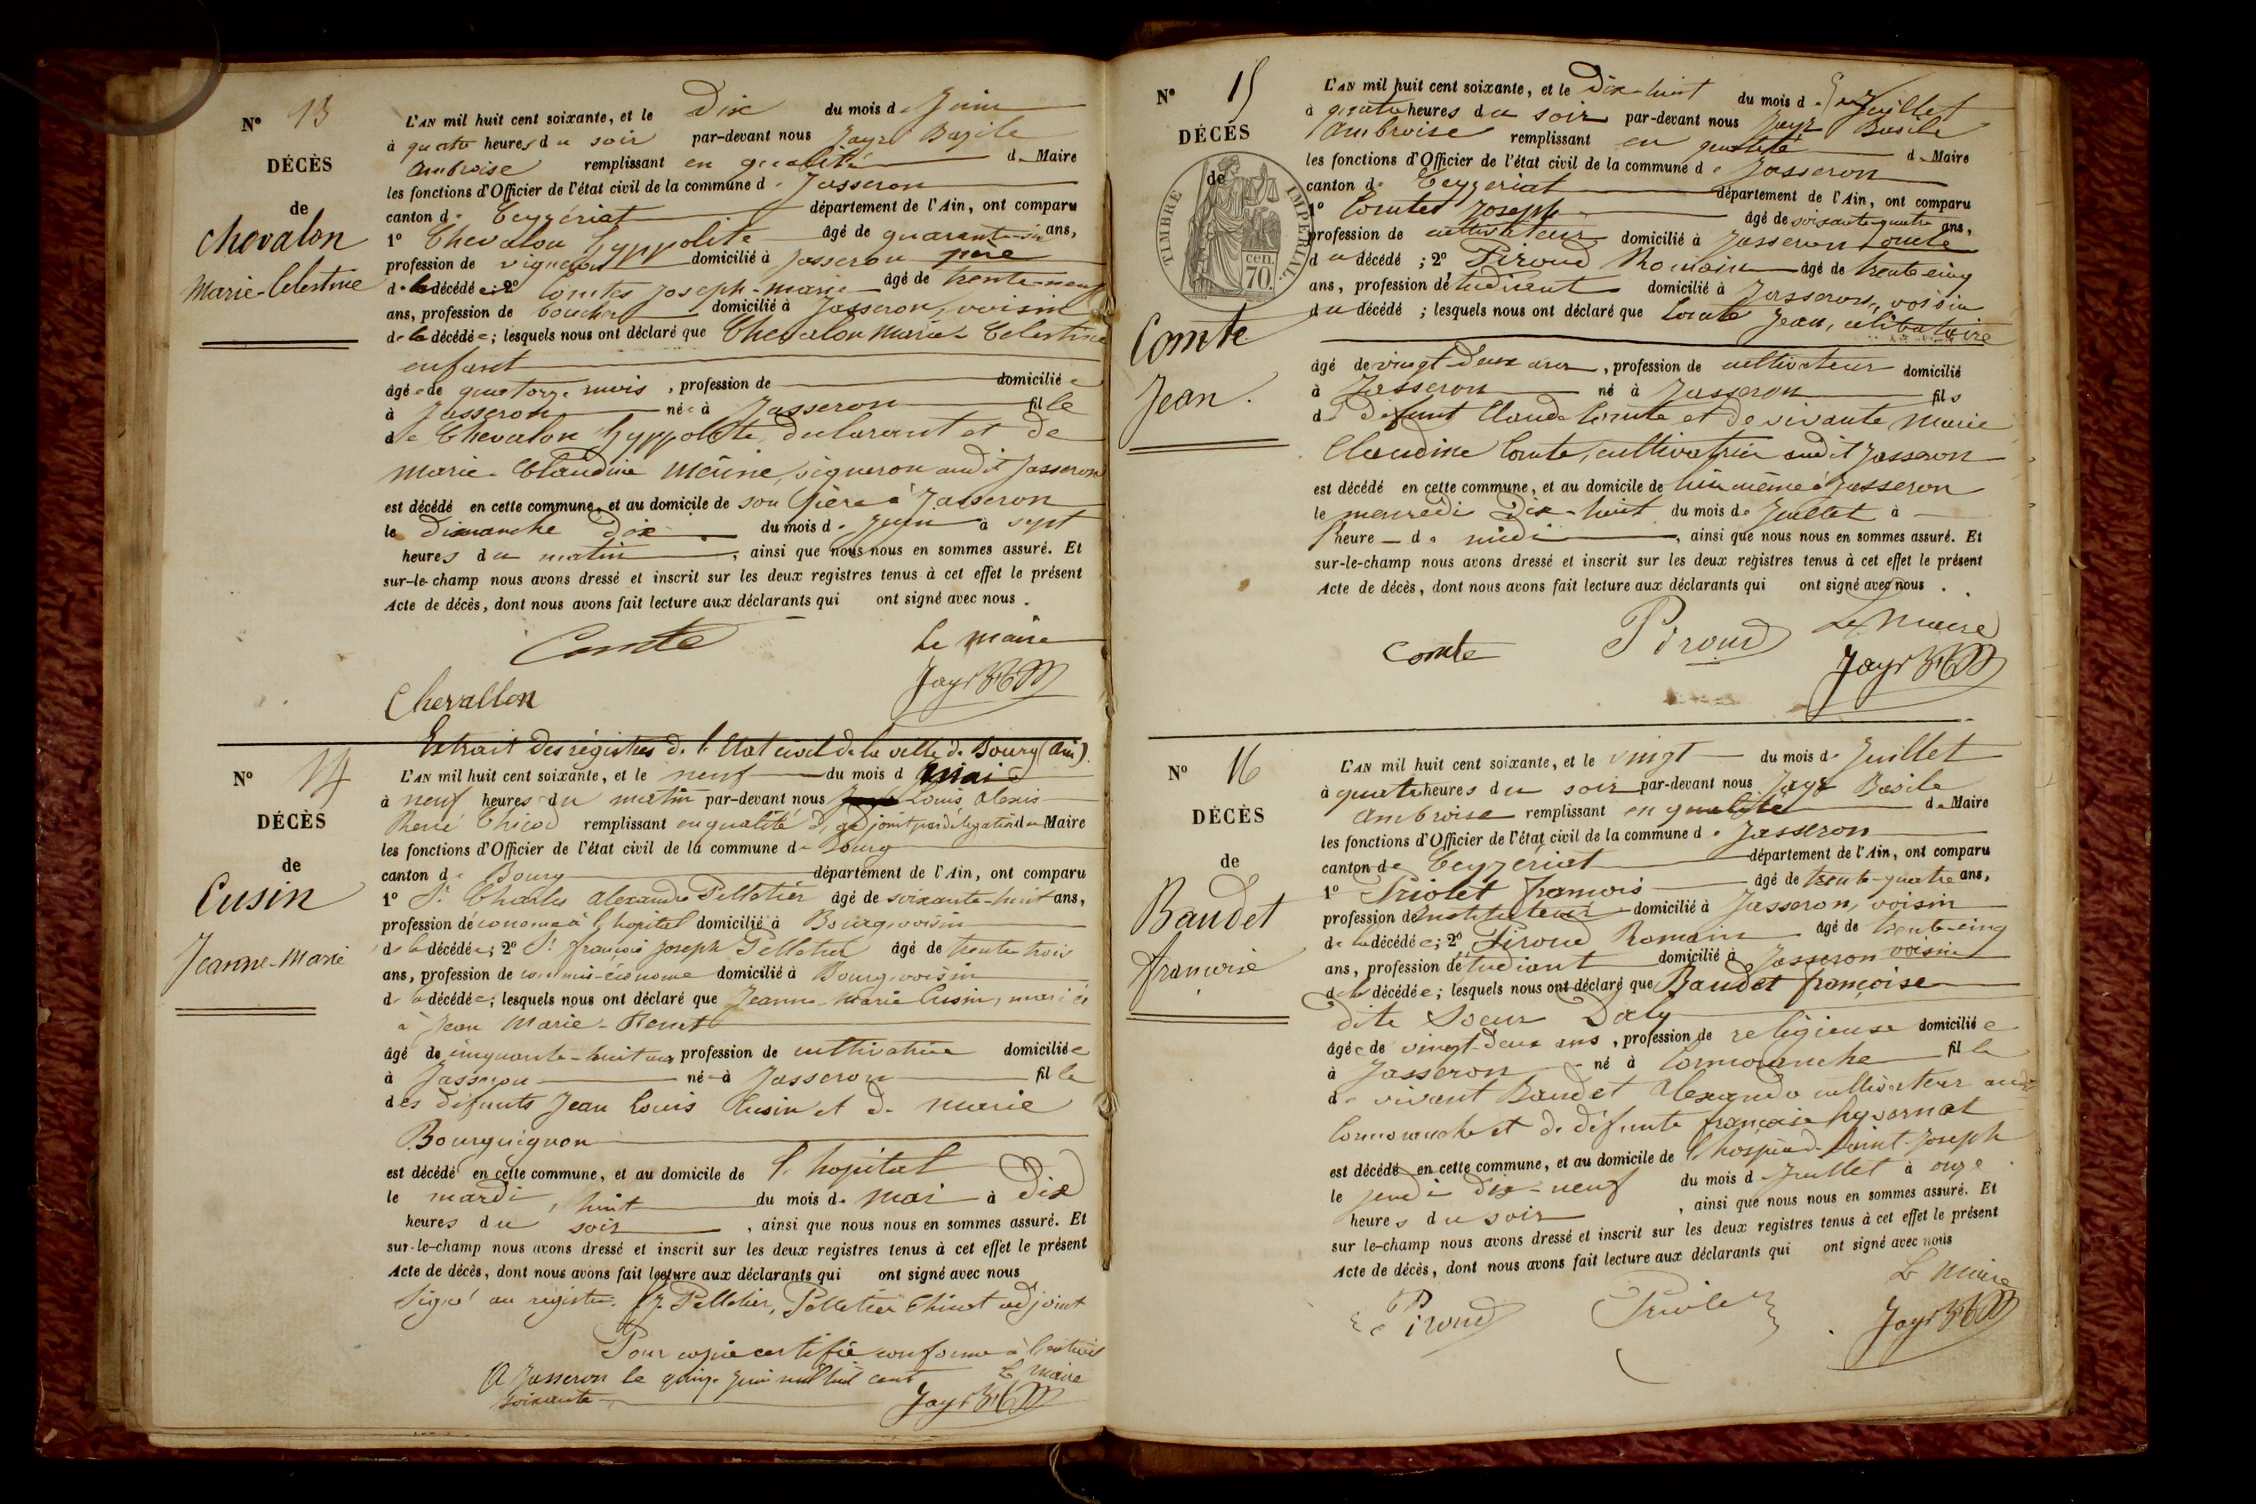 N° 13
DÉCÈS
de
Chevalon
Marie-Celestine
L'AN mil huit cent soixante, et le Dix du mois de Juin
à quatre heures du soir par-devant nous Jayr Bazile
Ambroise remplissant en qualité de Maire
les fonctions d'Officier de l'état civil de la commune de Jasseron
canton de Ceyzériat département de l'Ain, ont comparu
1° Chevalon hyppolite âgé de quarante-six ans,
profession de vigneron domicilié à Jasseron père
de la décédée; 2° Comtes Joseph-Marie âgé de trente-neuf
ans, profession de boucher domicilié à Jasseron, voisin
de la décédée; lesquels nous ont déclaré que Chevalon Marie-Celestine
enfant
âgée de quatorze mois, profession de domiciliée
à Jasseron née à Jasseron fille
de Chevalon hyppolite, declarant et de
Marie-Claudine vigneron audit Jasseron
est décédé en cette commune, et au domicile de son père à Jasseron
le Dimanche Dix du mois de Juin à sept
heures du matin, ainsi que nous nous en sommes assuré. Et
sur-le-champ nous avons dressé et inscrit sur les deux registres tenus à cet effet le présent
Acte de décès, dont nous avons fait lecture aux déclarants qui ont signé avec nous.
Comte Le Maire
Chevallon Jayr
Extrait des régistres de l'Etat civil de la ville de Bourg (Ain).
N° 14
DÉCÈS
de
Cusin
Jeanne-Marie
L'AN mil huit cent soixante, et le neuf du mois d mai
à neuf heures du matin par-devant nous Louis, Alexis
René Chicod remplissant en qualité d'adjoint par délégation du Maire
les fonctions d'Officier de l'état civil de la commune de Bourg
canton de Bourg département de l'Ain, ont comparu
1° Sr Charles Alexandre Pelletier âgé de soixante-huit ans,
profession d'économe à l'hopital domicilié à Bourg voisin
de la décédée; 2° Sr françois Joseph Pelletier âgé de trente trois
ans, profession de commis-économe domicilié à Bourg voisin
de la décédée; lesquels nous ont déclaré que Jeanne-Marie Cusin, mariée
à Jean Marie
âgé de cinquante-huit ans profession de cultivatrice domiciliée
à Jasseron née à Jasseron fille
des défunts Jean Louis Cusin et de Marie
Bourguignon
est décédé en cette commune, et au domicile de l'hopital
le mardi, huit du mois de mai à Dix
heures du soir, ainsi que nous nous en sommes assuré. Et
sur-le-champ nous avons dressé et inscrit sur les deux registres tenus à cet effet le présent
Acte de décès, dont nous avons fait lecture aux déclarants qui ont signé avec nous
Signé au registre. Pelletier, Pelletier adjoint
Pour copie certifiée conforme à l'extrait
A Jasseron le quinze Juin mil huit cent Le Maire
soixante Jayr
N° 15
DÉCÈS
de
TIMBRE IMPÉRIAL
70 cen.
Comte
Jean.
L'AN mil huit cent soixante, et le Dix-huit du mois de Juillet
à quatre heures du soir par-devant nous Jayr Basile
Ambroise remplissant en qualité de Maire
les fonctions d'Officier de l'état civil de la commune de Jasseron
canton de Ceyzeriat département de l'Ain, ont comparu
1° Comtes Joseph âgé de soixante-quatre ans,
profession de cultivateur domicilié à Jasseron oncle
du décédé; 2° Piroud Romain âgé de trente-cinq
ans, profession d'étudient domicilié à Jasseron, voisin
du décédé; lesquels nous ont déclaré que Comte Jean, célibataire
âgé de vingt-deux ans, profession de cultivateur domicilié
à Jasseron né à Jasseron fils
de défunt Claude Comte et de vivante Marie
Claudine Comte, cultivatrice audit Jasseron
est décédé en cette commune, et au domicile de lui même à Jasseron
le mercredi Dix-huit du mois de Juillet à
l'heure de midi, ainsi que nous nous en sommes assuré. Et
sur-le-champ nous avons dressé et inscrit sur les deux registres tenus à cet effet le présent
Acte de décès, dont nous avons fait lecture aux déclarants qui ont signé avec nous.
Comte Piroud Le Maire
Jayr
N° 16
DÉCÈS
de
Baudet
françoise
L'AN mil huit cent soixante, et le vingt du mois de Juillet
à quatre heures du soir par-devant nous Jayr Basile
Ambroise remplissant en qualité de Maire
les fonctions d'Officier de l'état civil de la commune de Jasseron
canton de Ceyzériat département de l'Ain, ont comparu
1° Priolet françois âgé de trente-quatre ans,
profession d'instituteur domicilié à Jasseron, voisin
de la décédée; 2° Piroud Romain âgé de trente-cinq
ans, profession d'étudiant domicilié à Jasseron voisin
de la décédée; lesquels nous ont déclaré que Baudet françoise
dite Soeur
âgée de vingt-deux ans, profession de religieuse domiciliée
à Jasseron né à Cormoranche fille
de vivant Baudet Alexandre cultivateur audit
Cormoranche et de défunte françoise hyvernat
est décédé en cette commune, et au domicile de l'hospice Saint-Joseph
le jeudi dix-neuf du mois de Juillet à onze
heures du soir, ainsi que nous nous en sommes assuré. Et
sur le-champ nous avons dressé et inscrit sur les deux registres tenus à cet effet le présent
Acte de décès, dont nous avons fait lecture aux déclarants qui ont signé avec nous
Le Maire
Piroud Priolet Jayr